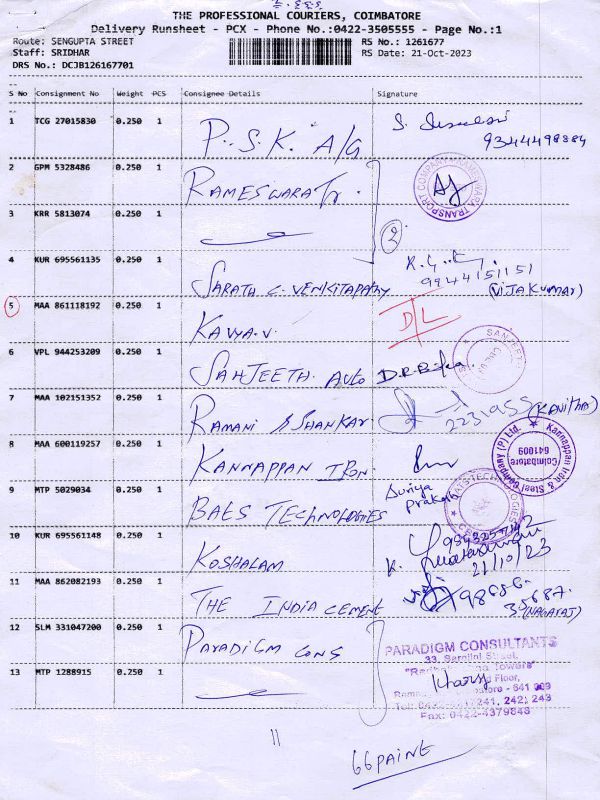 THE PROFESSIONAL COURIERS, COIMBATORE
Delivery Runsheet - PCX - Phone No.:0422-3505555 - Page No.:1
Route: SENGUPTA STREET RS No.: 1261677
Staff: SRIDHAR RS Date: 21-Oct-2023
DRS No.: DCJB126167701
S No Consignment No Weight PCS Consignee Details Signature
1 TCG 27015830 0.250 1 P.S.K. A/G
9344498884
2 GPM 5328486 0.250 1 RAMESWARA Tr.
3 KRR 5813074 0.250 1
2
4 KUR 695561135 0.250 1 SARATH C. VENKITAPATHY
9944151151
(VIJAKUMAR)
5 MAA 861118192 0.250 1 KAVYA.V. D/L
6 VPL 944253209 0.250 1 SANJEETH AUTO
7 MAA 102151352 0.250 1 RAMANI S SHANKAR 2231955 (KAVITHA)
8 MAA 600119257 0.250 1 KANNAPPAN IRON.
Kannappan Iron & Steel Company (P) Ltd.
Coimbatore
641009
9 MTP 5029034 0.250 1 BAES TECHNOLOGIES Suriya
Prakash
10 KUR 695561148 0.250 1 KOSHALAM K.
21/10/23
11 MAA 862082193 0.250 1 THE INDIA CEMENT 98686-
35687.
(NAGARAJ)
12 SLM 331047200 0.250 1 PARADIGM CONS
PARADIGM CONSULTANTS
33, Sarojini Street,
Towers"
Floor,
13 MTP 1288915 0.250 1
- 641 009
241, 242, 243
Fax: 0422-4379848
11
66PAINE